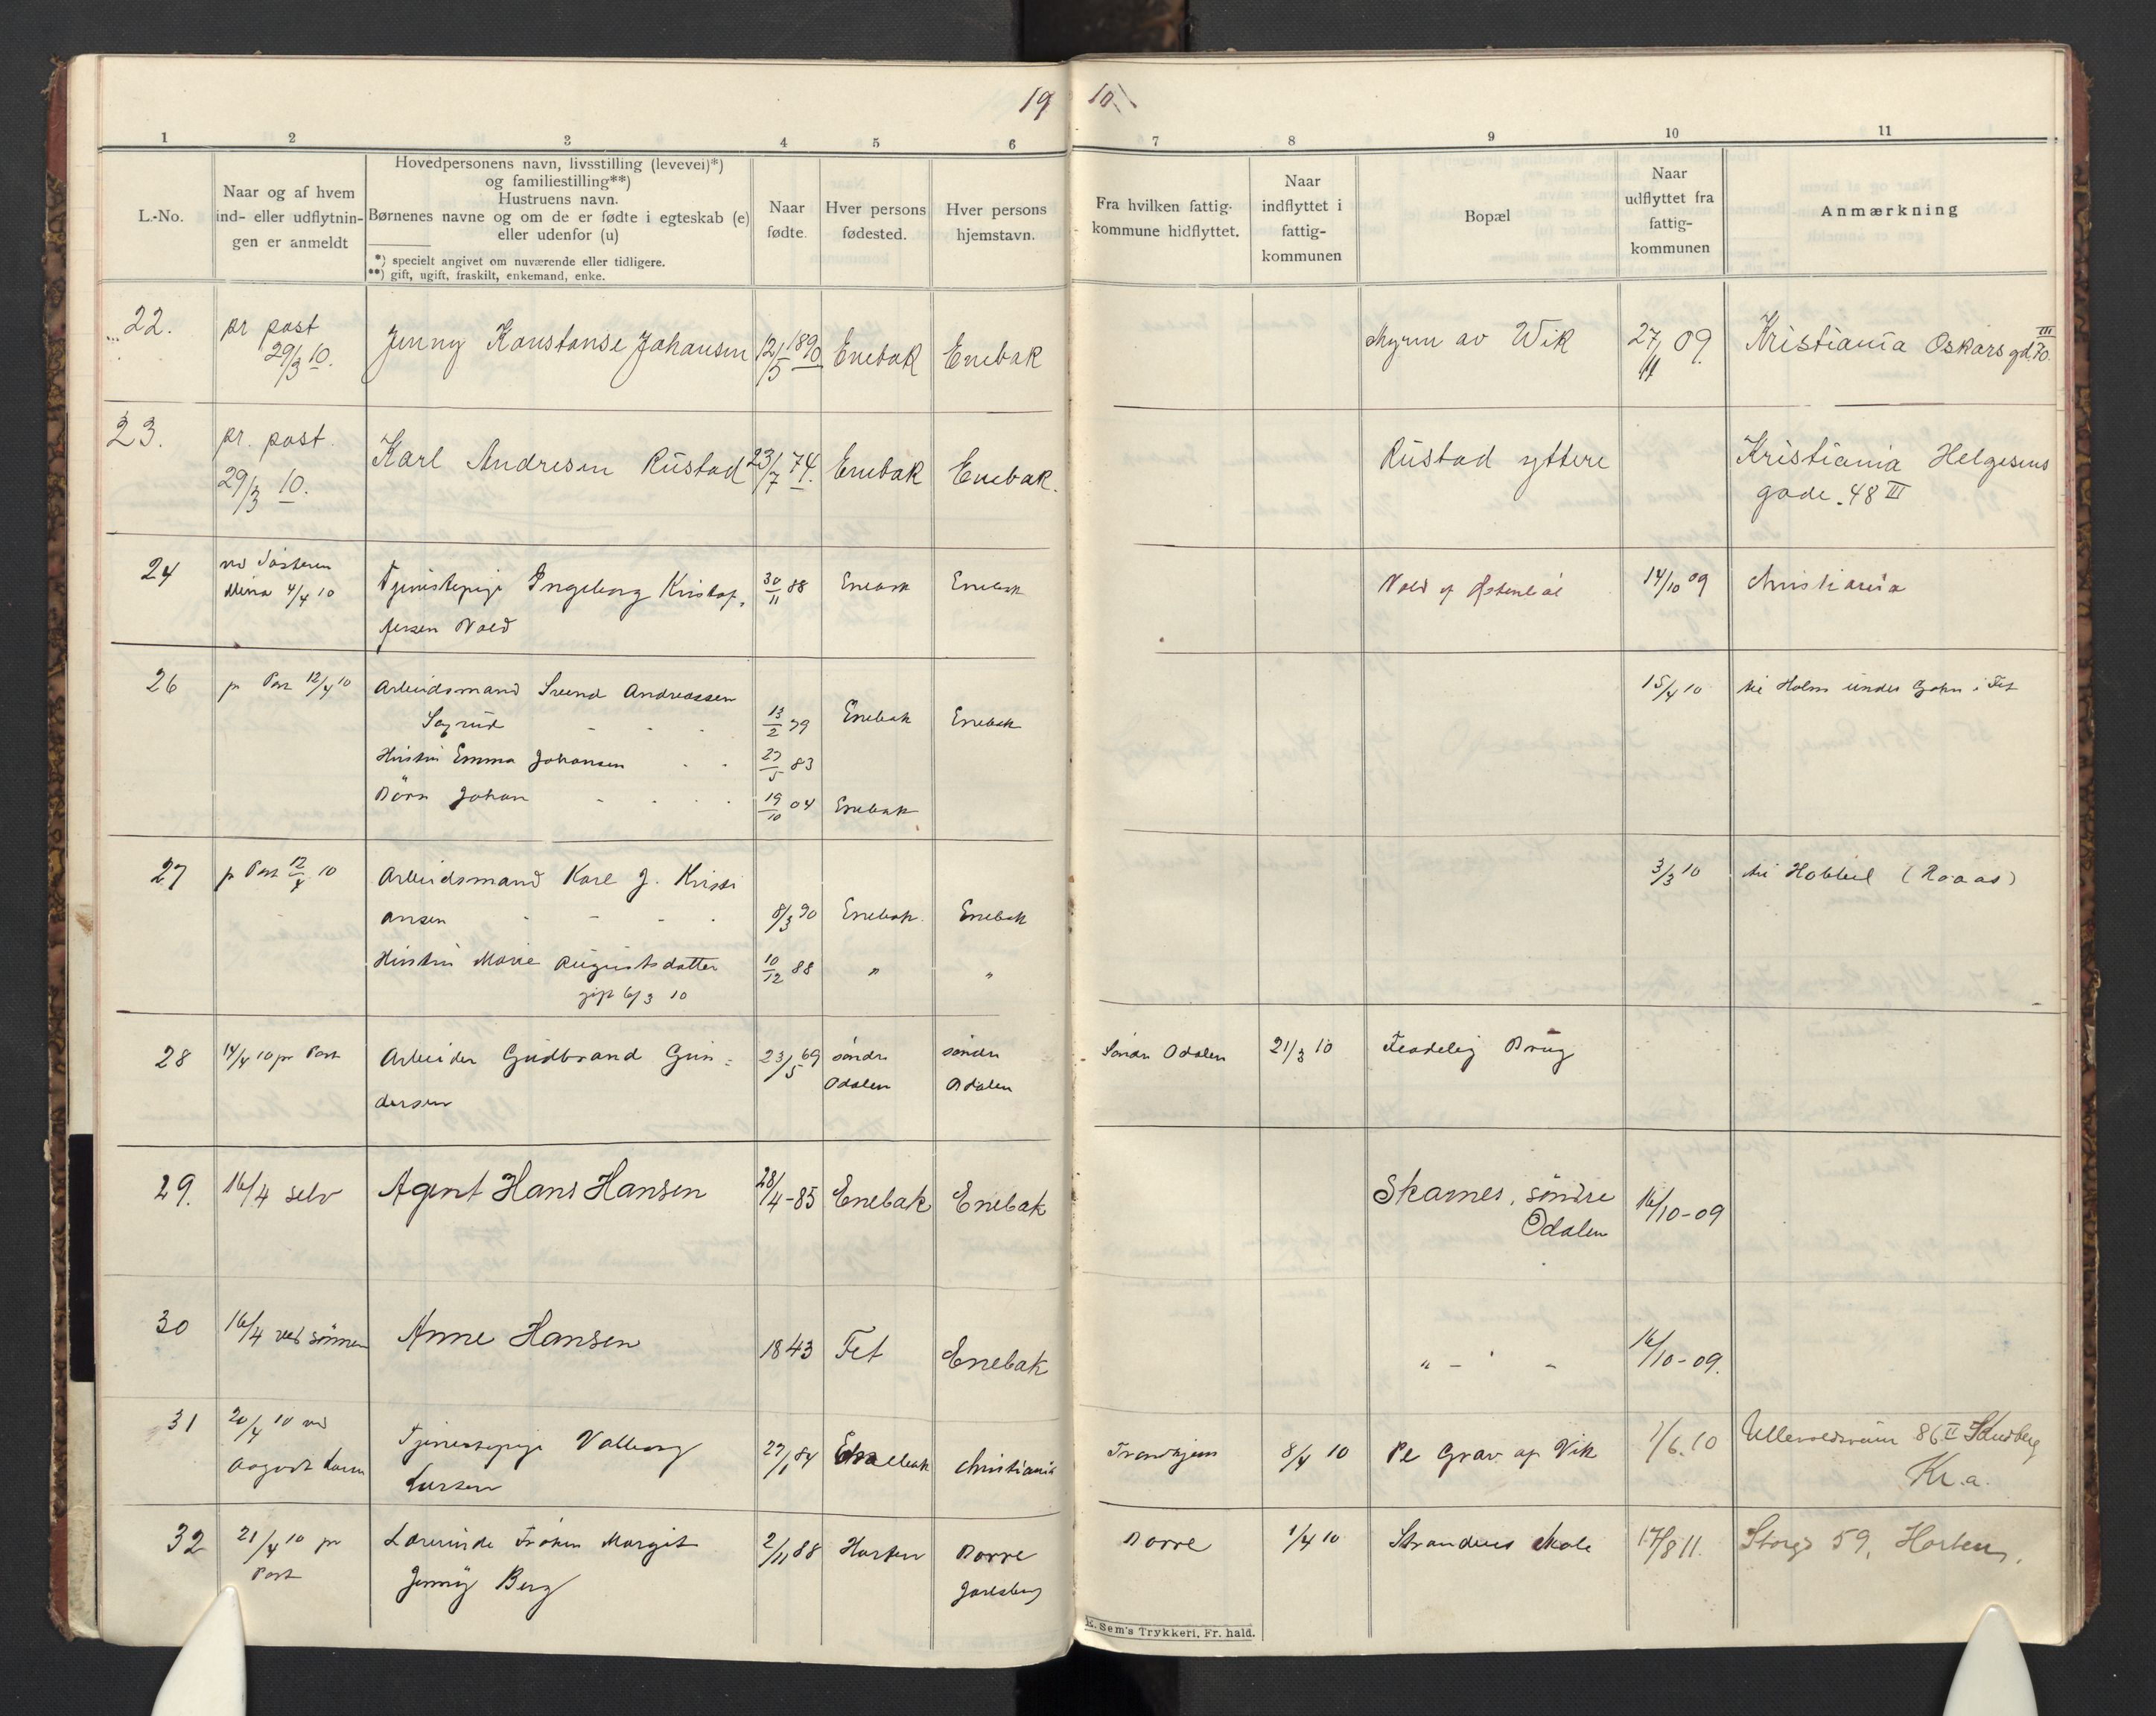 19 10
1 2 3 4 5 6 7 8 9 10 11
L.-No.
Naar og af hvem
ind- eller udflytnin-
gen er anmeldt
Hovedpersonens navn, livsstilling (levevei)*)
og familiestilling**)
Hustruens navn.
Børnenes navne og om de er fødte i egteskab (e)
eller udenfor (u)
*) specielt angivet om nuværende eller tidligere.
**) gift, ugift, fraskilt, enkemand, enke.
Naar
fødte.
Hver persons
fødested.
Hver persons
hjemstavn.
Fra hvilken fattig-
kommune hidflyttet.
Naar
indflyttet i
fattig-
kommunen
Bopæl
Naar
udflyttet fra
fattig-
kommunen
Anmærkning
22. pr post Jenny Konstanse Johansen 12/5 1890 Enebak Enebak Myrun av Wik 27/11 09. Kristiania Oskars gd. 70. III
29/3 10.
23. pr. post Karl Andresen Rustad 23/7 74. Enebak Enebak. Rustad yttere Kristiania Helgesens
29/3 10. gade. 48 III
24 ved Søsteren Tjenestepige Ingeborg Kristof- 30/11 88 Enebak Enebak Vold 14/10 09 Christiania
Mina 4/4 10 fersen Vold
26 pr Post 12/4 10 Arbeidsmand Svend Andreassen 15/4 10 til Holm under i Fet
Sagrud 13/2 79 Enebak Enebak
Hustru Emma Johansen 27/5 83
Børn Johan 19/10 04 Enebak
27 pr Post 12/4 10 Arbeidsmand Karl J. Kristi 3/3 10 til Hobbøl (Raaas)
ansen 8/3 90 Enebak Enebak
Hustru Marie Augustsdatter 10/12 88 " "
gift 6/3 10
28 14/4 10 pr Post Arbeider Gudbrand Gun- 23/5 69 søndre søndre Søndre Odalen 21/3 10 Brug
dersen Odalen Odalen
29. 16/4 selv Agent Hans Hansen 28/4-85 Enebak Enebak Skarnes, søndre 16/10-09
Odalen
30 16/4 ved sønnen Anne Hansen 1843 Fet Enebak " - ' - 16/10-09.
31 20/4 10 ved Tjenestepige Valborg 27/1 84 Enebak Christiania Trondhjem 8/4 10 Grav af Vik 1/6.10 Ullevoldsveien 86 II
August Larsen Kr.a.
32 21/4 10 pr Lærerinde Frøken Margit 2/11 88 Horten Borre Borre 1/4 10 Strandens skole 17/8 11. Storgd 59, Horten.
Post Jenny Berg Jarlsberg
K. Sem's Trykkeri. Fr. hald.